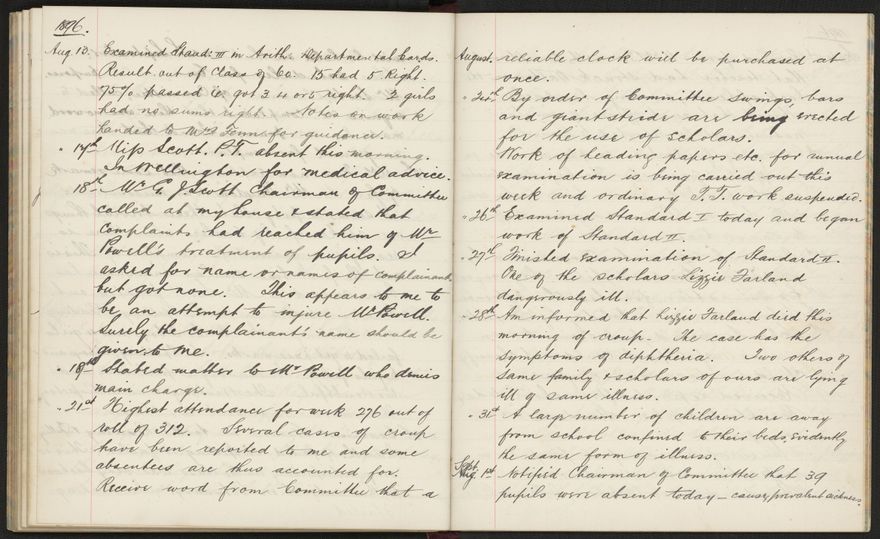 1896.
Aug. 10. Examined Stand: III in Arith: Departmental Cards.
Result. out of Class of 60. 15 had 5 Right.
75% passed ie. got 3 4 or 5 right. 2 girls
had no sums right. Notes on work
handed to Mrs Fenn for guidance.
" 17th Miss Scott. P.T. absent this morning.
In Wellington for medical advice.
18th Mr G. J. Scott Chairman of Committee
called at my house & stated that
complaints had reached him of Mr
Powell's treatment of pupils. I
asked for name or names of complainant.
but got none. This appears to me to
be an attempt to injure Mr Powell.
Surely the complainant's name should be
given to me.
" 18th Stated matter to Mr Powell who denies
main charge.
" 21st Highest attendance for week 276 out of
roll of 312. Several cases of croup
have been reported to me and some
absentees are thus accounted for.
Receive word from Committee that a
August. reliable clock will be purchased at
once.
" By order of Committee swings, bars
and giant stride are being erected
for the use of scholars.
Work of heading papers etc. for annual
examination is being carried out this
week and ordinary T.T. work suspended.
" 26th Examined Standard I today and began
work of Standard II.
" 27th Finished examination of Standard II.
One of the scholars Lizzie Farland
dangerously ill.
" 28th Am informed that Lizzie Farland died this
morning of croup. The case has the
symptoms of diphtheria. Two others of
same family & scholars of ours are lying
ill of same illness.
" 31st A large number of children are away
from school confined to their beds, evidently
the same form of illness.
Sept. 1st Notified Chairman of Committee that 39
pupils were absent today – cause, prevalent sickness.